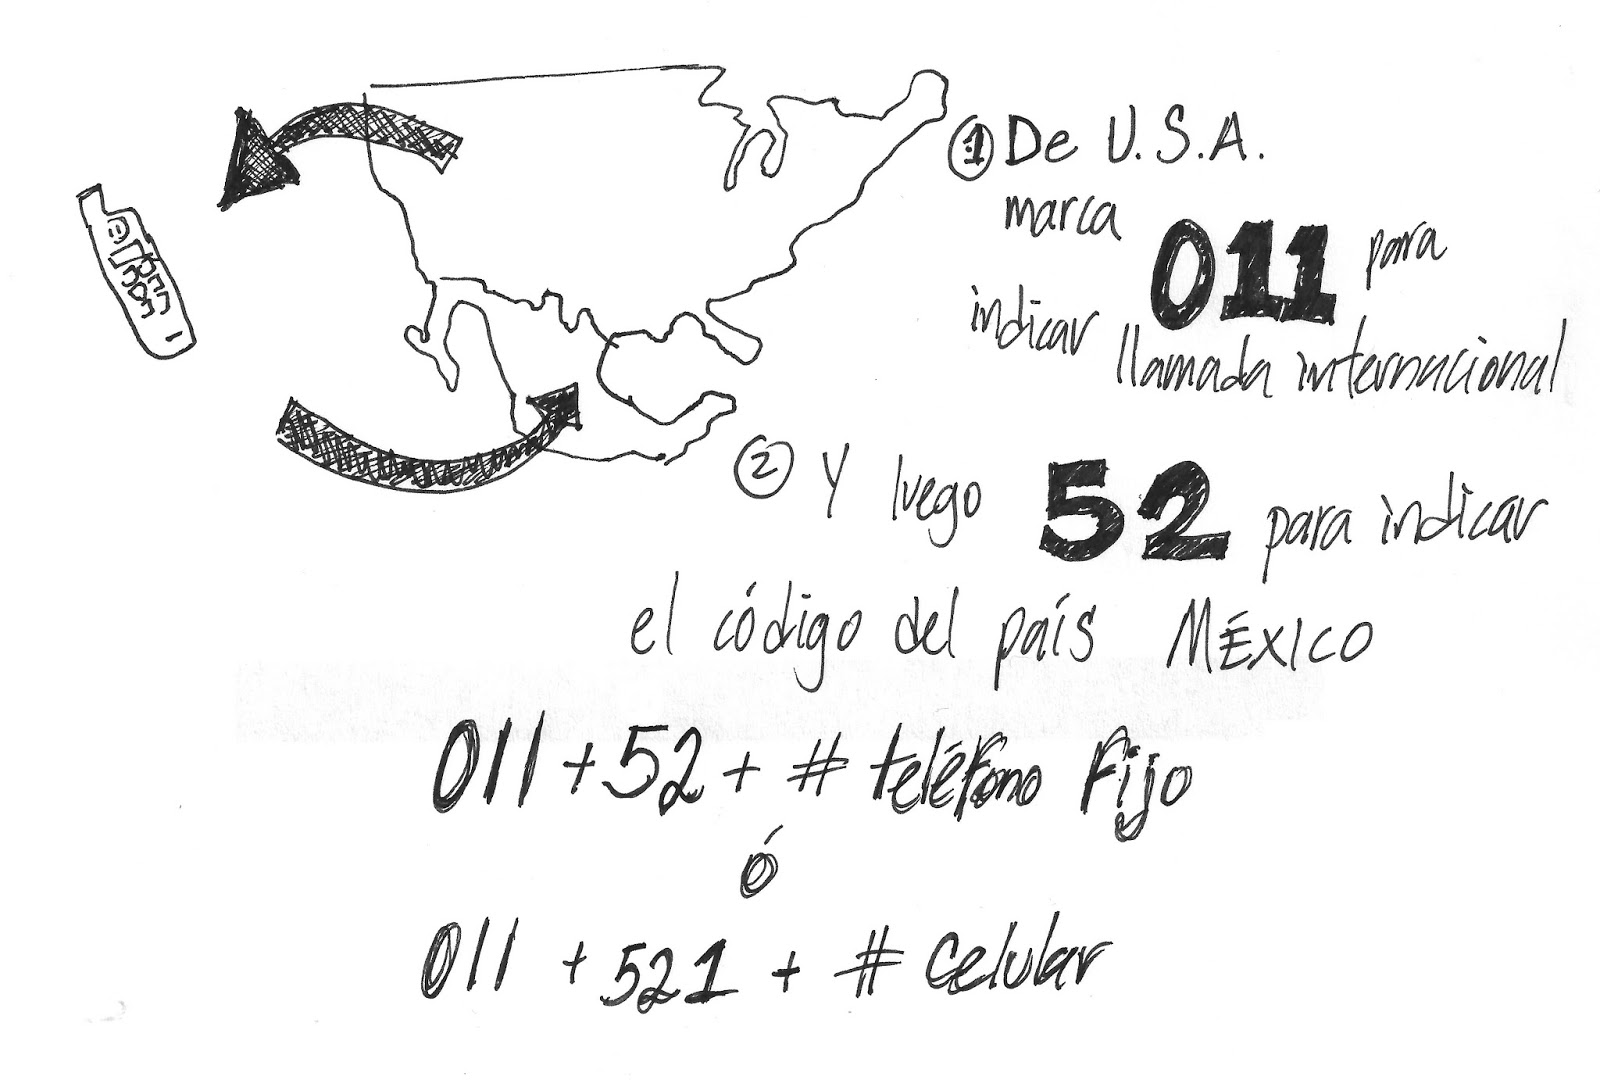 1 De U.S.A.
marca 011 para
indicar llamada internacional
2 Y luego 52 para indicar
el código del país MÉXICO
011 + 52 + # teléfono Fijo
ó
011 + 521 + # celular